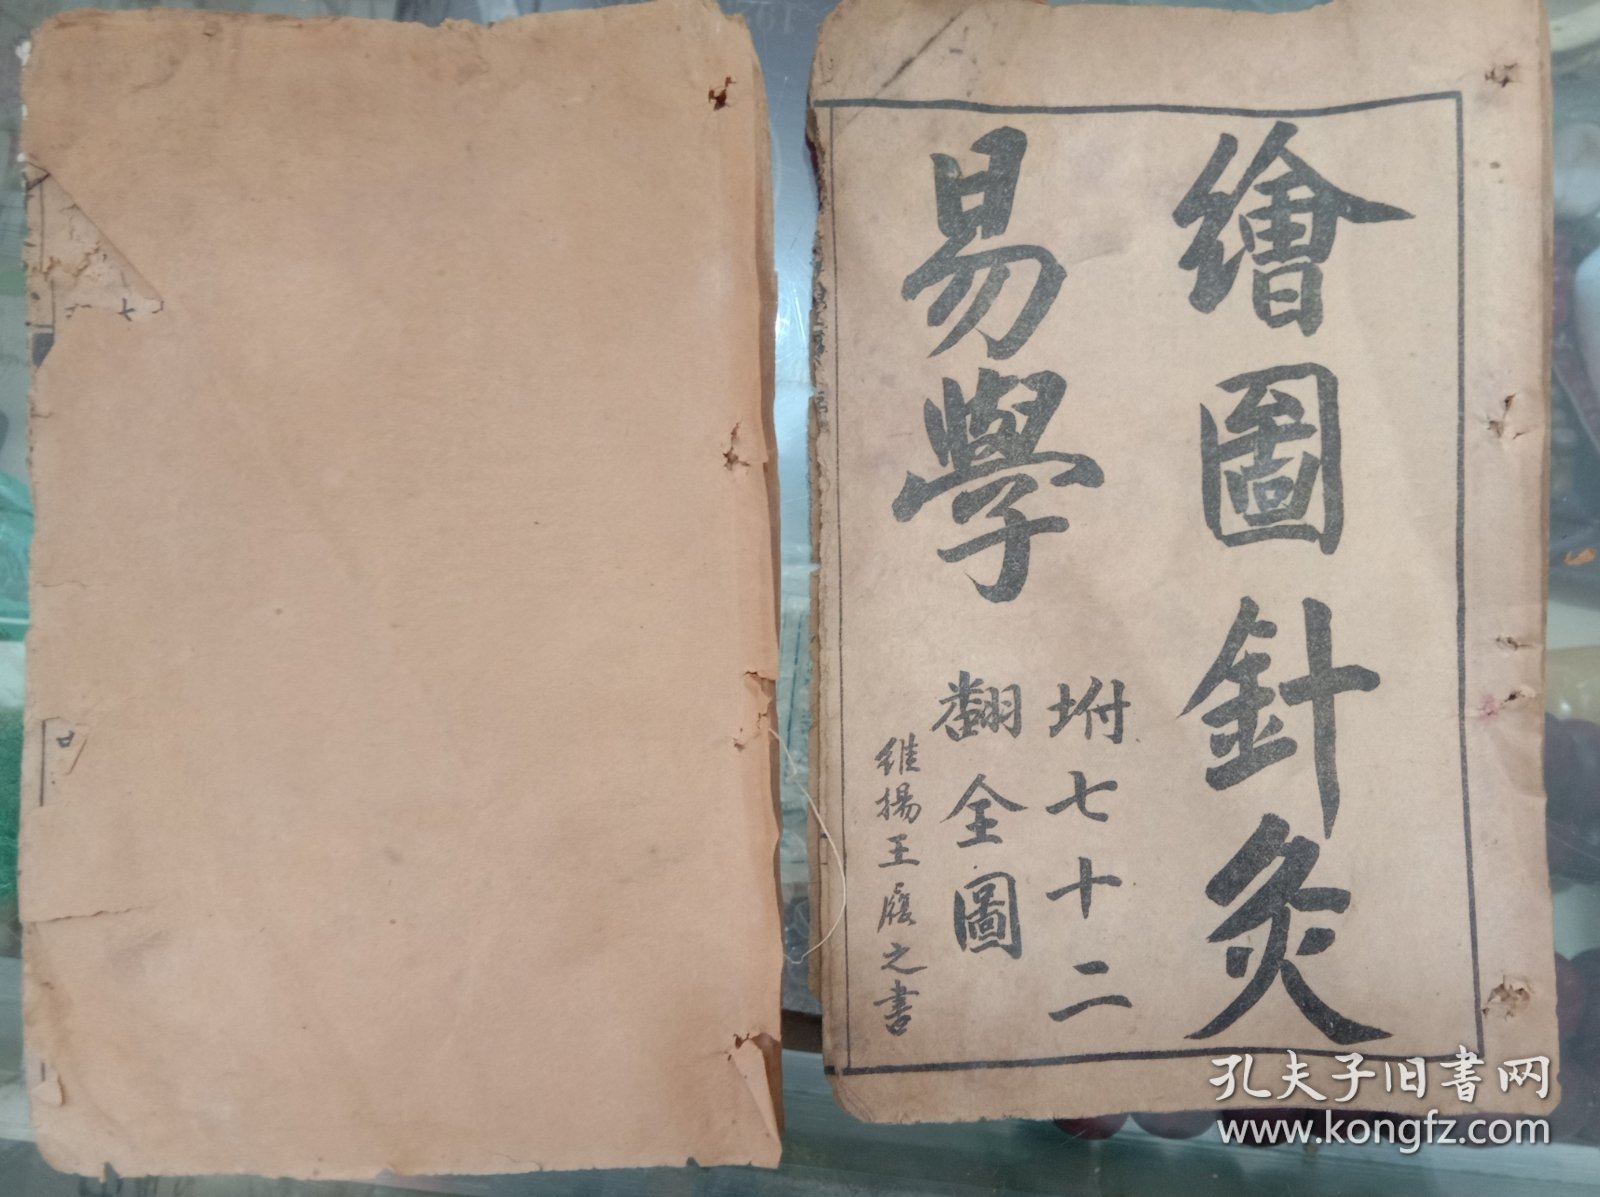 繪圖針灸
易學
坿七十二
翻全圖
維揚王履之書
孔夫子旧書网
www.kongfz.com